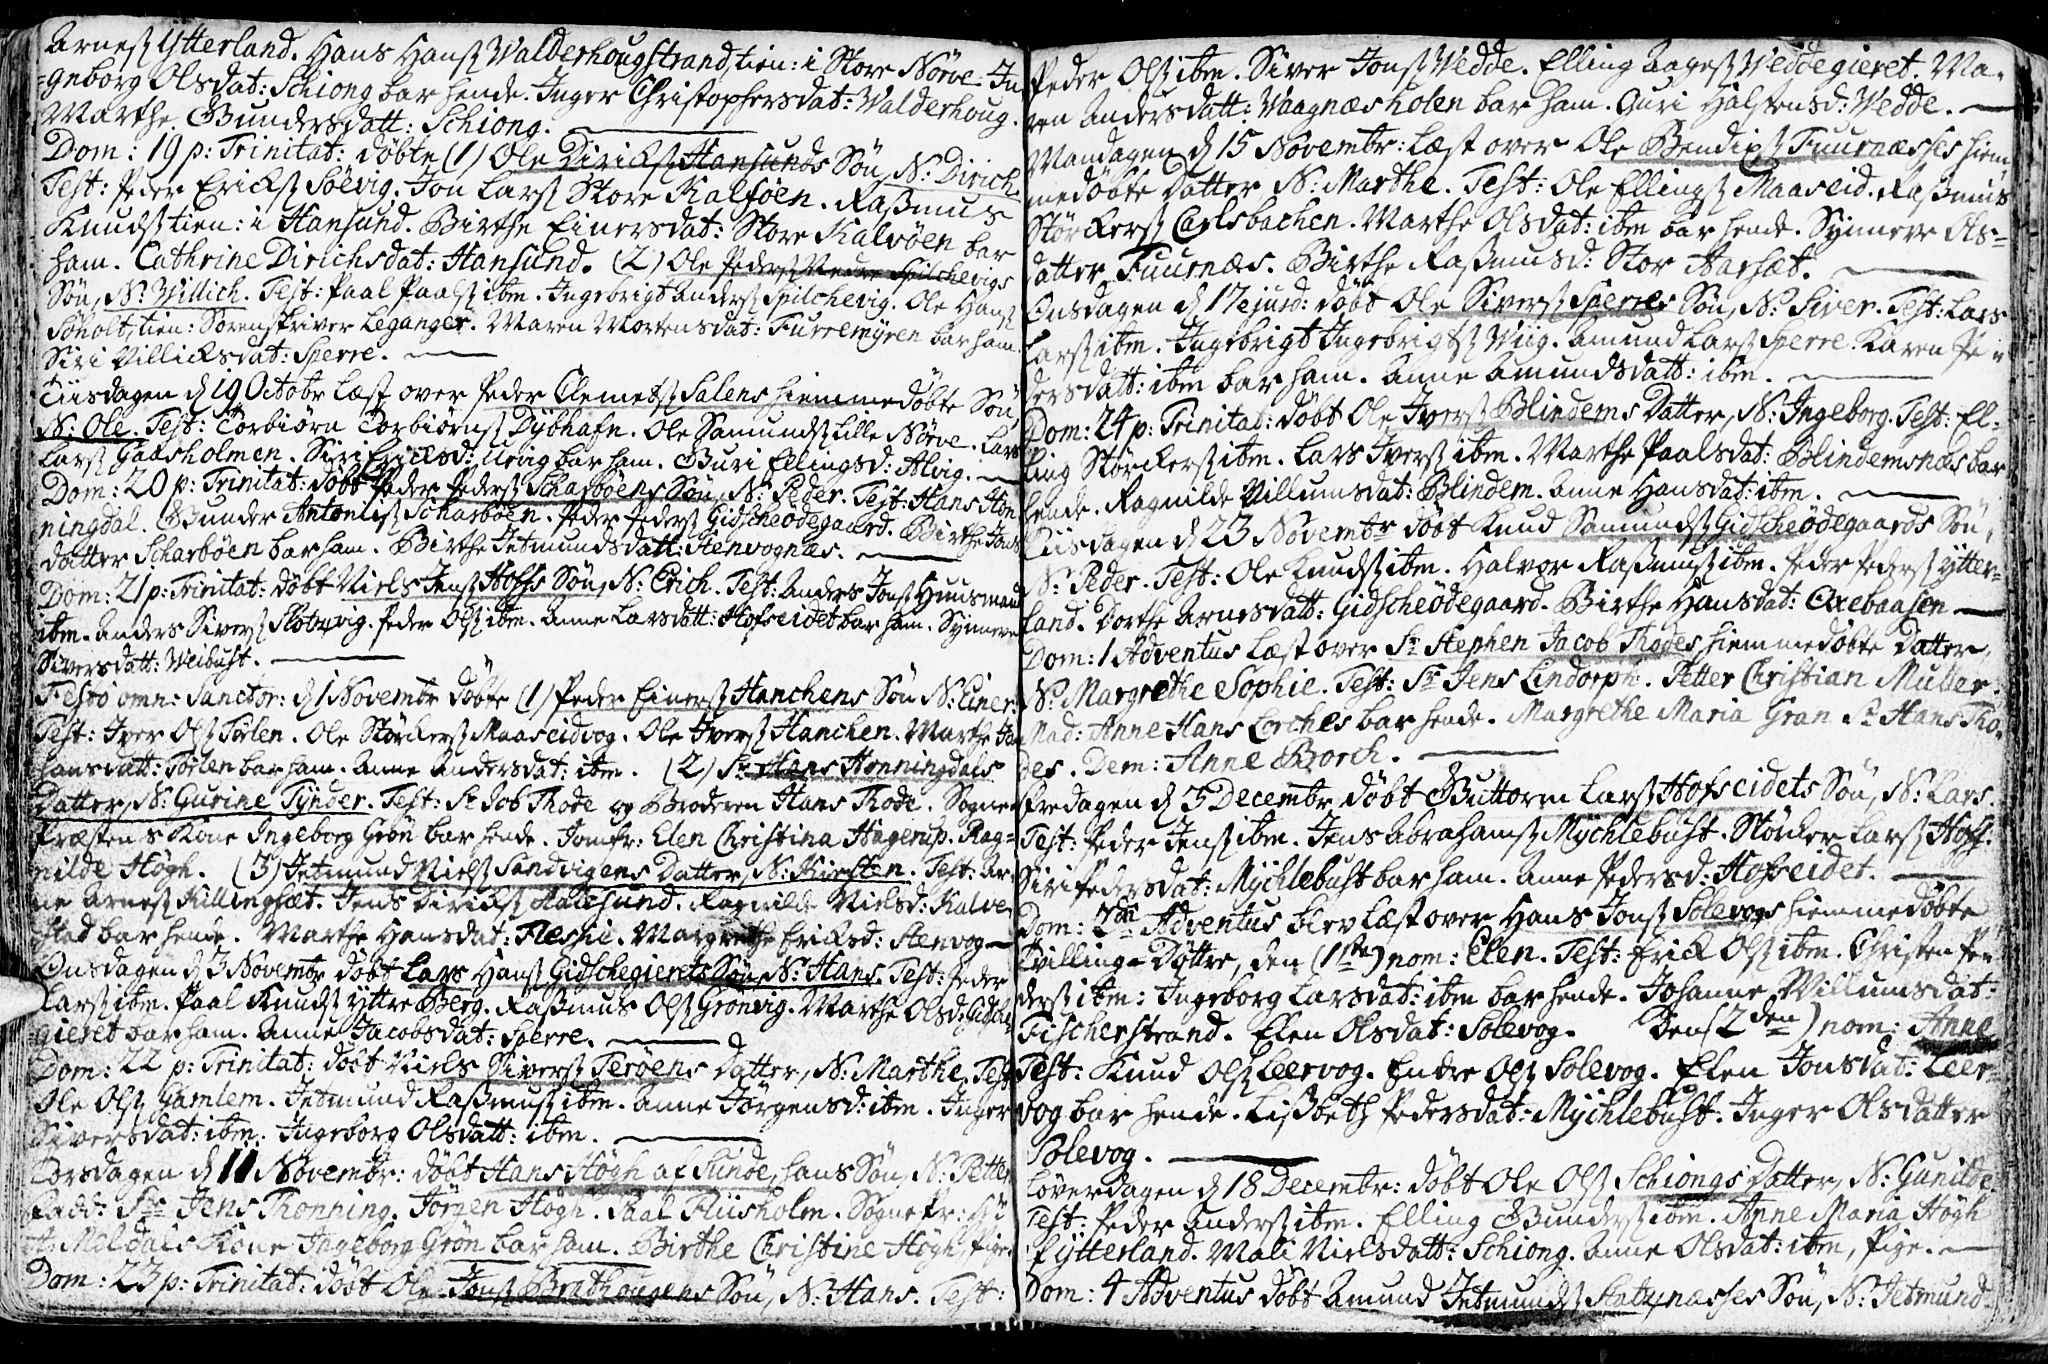 Arnesz Ytterland. Hans Hansz Walderhougstrand, tien: i Store Nörve. In-
geborg Olsdat: Schiong bar hende. Inger Christophersdat: Walderhoug.
Marthe Gundersdatt: Schiong.
Dom: 19 p: Trinitat: döbte (1) Ole Dirichsz Hansunds Sön, N: Dirich.
Test: Peder Ericksz Söevig. Jon Larsz Store Kalföen. Rasmus
Knudsz tien: i Hansund. Birthe Einersdat: Store Kalvöen bar
ham. Cathrine Dirichsdat: Hansund. (2) Ole Pedersz Nedre Spilchevigs
Sön, N: Willich. Test: Paal Paalsz ibm. Ingebrigt Andersz Spilchevig. Ole Hansz
Söholt, tien: Sorenskriver Leganger. Maren Mortensdat: Furremyren bar ham.
Siri Villicksdat: Sperre.
Tiisdagen d 19 Octobr læst over Peder Clemetsz Salens hiemmedöbte Sön,
N: Ole. Test: Torbiörn Torbiörnsz Dybhafn. Ole Samundsz Lille Nörve. Lars
Larsz Gaasholmen. Siri Ericksd: Uevig bar ham. Guri Ellingsd: Alvig.
Dom: 20 p: Trinitat: döbt Peder Pedersz Scharböens Sön, N: Peder. Test: Hans Hon-
ningdal. Gunder Antonisz Scharböen. Peder Pedersz Gidscheödegaard. Birthe Jons
datter Scharböen bar ham. Birthe Jetmundsdatt: Stenvognæs.
Dom: 21 p: Trinitat: döbt Niels Jensz Hoffs Sön, N: Erich. Test: Anders Jonsz Huusmand
ibm. Anders Siversz Flotevig. Peder Olsz ibm. Anne Larsdatt: Hofseidet bar ham. Synneve
Siversdatt: Weibust.
Festo omn: Sanctor: d 1 Novembr döbte (1) Peder Einersz Hanchens Sön N: Einer.
Test: Iver Olsz Törlen. Ole Störchersz Maaseidvog. Ole Iversz Hanchen. Marthe Jo-
hansdatt: Törlen bar ham. Anne Andersdat: ibm. (2) Sr Hans Honningdals
Datter, N: Gurine Tynder. Test: Sr Job Thode og Broderen Hans Thode. Sogne
Præstens Kone Ingeborg Grön bar hende. Jomfr: Elen Christina Hagerup. Rag-
nilde Högh. (3) Jetmund Nielsz Sandvigens Datter, N: Kirsten. Test: Ar-
ne Arnesz Killingsæt. Jens Dircksz Aalesund. Ragnilde Nielsd: Kalve-
stad bar hende. Marthe Hansdat: Fleskie. Margrethe Ericksd: Stenvog
Onsdagen d 3 Novembr döbt Lars Hansz Gidschegierets Sön, N: Hans. Test: Peder
Larsz ibm. Paal Knudsz yttre Berg. Rasmus Olsz Grönvig. Marthe Olsd: Gidsche
gieret bar ham. Anne Jacobsdat: Sperre.
Dom: 22 p: Trinitat: döbt Niels Siversz Teröens Datter, N: Marthe. Test
Ole Olsz Gamlem. Jetmund Rasmusz ibm. Anne Jörgensd: ibm. Inger
Siversdat: ibm. Ingeborg Olsdatt: ibm.
Torsdagen d 11 Novembr: döbt Hans Högh af Sunde, hans Sön, N: Petter
Fadd: Sr Jens Thonning. Jörgen Högh. Paal Fliisholm. Sognepr:
Meldals Kone Ingeborg Grön bar ham. Birthe Christine Högh, Pige.
Dom: 23 p: Trinitat: döbt Ole Jonsz Brathougens Sön, N: Hans. Test:
Peder Olsz ibm. Siver Jonsz Vedde. Elling Aagesz Veddegieret. Ma-
ren Andersdatt: Vaagnæsholen bar ham. Guri Halstensd: Vedde.
Mandagen d 15 Novembr: læst over Ole Bendixsz Fuurnæsses hiem-
medöbte Datter N: Marthe. Test: Ole Ellingsz Maaseid. Rasmus
Störckersz Carlsbachen. Marthe Olsdat: ibm bar hende. Synneve Ols-
datter Fuurnæs. Birthe Rasmusd: Stor Aarsæt.
Onsdagen d 17 ejusd: döbt Ole Siversz Sperres Sön, N: Siver. Test: Lars
Larsz ibm. Ingebrigt Ingebrigtsz Wiig. Amund Larsz Sperre. Karen Pe-
dersdatt: ibm bar ham. Anne Amundsdatt: ibm.
Dom: 24 p: Trinitat: döbt Ole Iversz Blindems Datter, N: Ingeborg. Test: El-
ling Störckersz ibm. Lars Iversz ibm. Marthe Paalsdat: Blindemsnæs bar
hende. Ragnilde Villumsdat: Blindem. Anne Hansdat: ibm.
Tiisdagen d 23 Novembr döbt Knud Samundsz Gidscheödegaards Sön,
N: Peder. Test: Ole Knudsz ibm. Halvor Rasmusz ibm. Peder Pedersz ytter-
land. Dorthe Arnesdatt: Gidscheödegaard. Birthe Hansdat: Oxebaasen
Dom: 1 Adventus læst over Sr Stephen Jacob Thodes hiemmedöbte Datter,
N: Margrethe Sophie. Test: Sr Jens Lindorph. Petter Christian Muller.
Mad: Anne Hans Lorches bar hende. Margrethe Maria Gran Sr Hans Tho-
des. Dem: Anne Borch.
Fredagen d 3 Decembr döbt Guttorm Larsz Hofseidets Sön, N: Lars.
Test: Peder Jensz ibm. Jens Abrahamsz Mychlebust. Störcker Larsz Hoff.
Siri Pedersdat: Mychlebust bar ham. Anne Pedersd: Hofseidet.
Dom: 2da Adventus blev læst over Hans Jonsz Solevogs hiemmedöbte
Tvilling-Döttre, den (1ste) nom: Elen. Test: Erick Olsz ibm. Christen Pe-
dersz ibm: Ingeborg Larsdat: ibm bar hende. Johanne Willumsdat:
Fischerstrand. Elen Olsdat: Solevog. Den (2den) nom: Anne
Test: Knud Olsz Leervog. Endre Olsz Solevog. Elen Jonsdat: Leer-
vog bar hende. Lisbeth Pedersdat: Mychlebust. Inger Olsdatter
Solevog.
Löverdagen d 18 Decembr: döbt Ole Olsz Schiongs Datter, N: Gunilde.
Test: Peder Andersz ibm. Elling Gundersz ibm. Anne Maria Högh
fr ytterland. Mali Nielsdatt: Schiong. Anne Olsdat: ibm, Pige.
Dom: 4 Adventus döbt Amund Jetmundsz Antznæsses Sön, N: Jetmund.